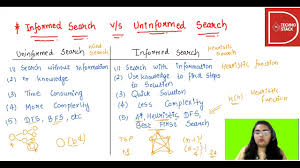 * Informed Search v/s Uninformed Search
TECHNO
STACK
Uninformed Search
Blind Search
Informed Search
Heuristic Search
(1) Search without Information
(2) No knowledge
(3) Time Consuming
(4) More Complexity
(5) DFS, BFS, etc.
(1) Search with information
(2) Use knowledge to find steps
to Solution
(3) Quick Solution
(4) Less Complexity
(5) A*, Heuristic DFS,
Best First Search
Heuristic function
Heuristic
Function